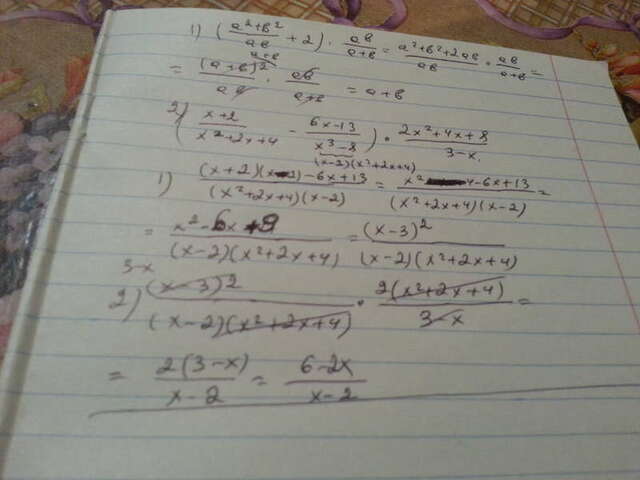 1) (a²+b²/ab + 2) · ab/a+b = a²+b²+2ab/ab · ab/a+b =
= (a+b)²/ab · ab/a+b = a+b
a+b
2) (x+2/x²+2x+4 - 6x-13/x³-8) · 2x²+4x+8/3-x
(x-2)(x²+2x+4)
1) (x+2)(x-2)-6x+13/(x²+2x+4)(x-2) = x²-4-6x+13/(x²+2x+4)(x-2) =
= x²-6x+9/(x-2)(x²+2x+4) = (x-3)²/(x-2)(x²+2x+4)
3-x
2) (x-3)²/(x-2)(x²+2x+4) · 2(x²+2x+4)/3-x =
= 2(3-x)/x-2 = 6-2x/x-2